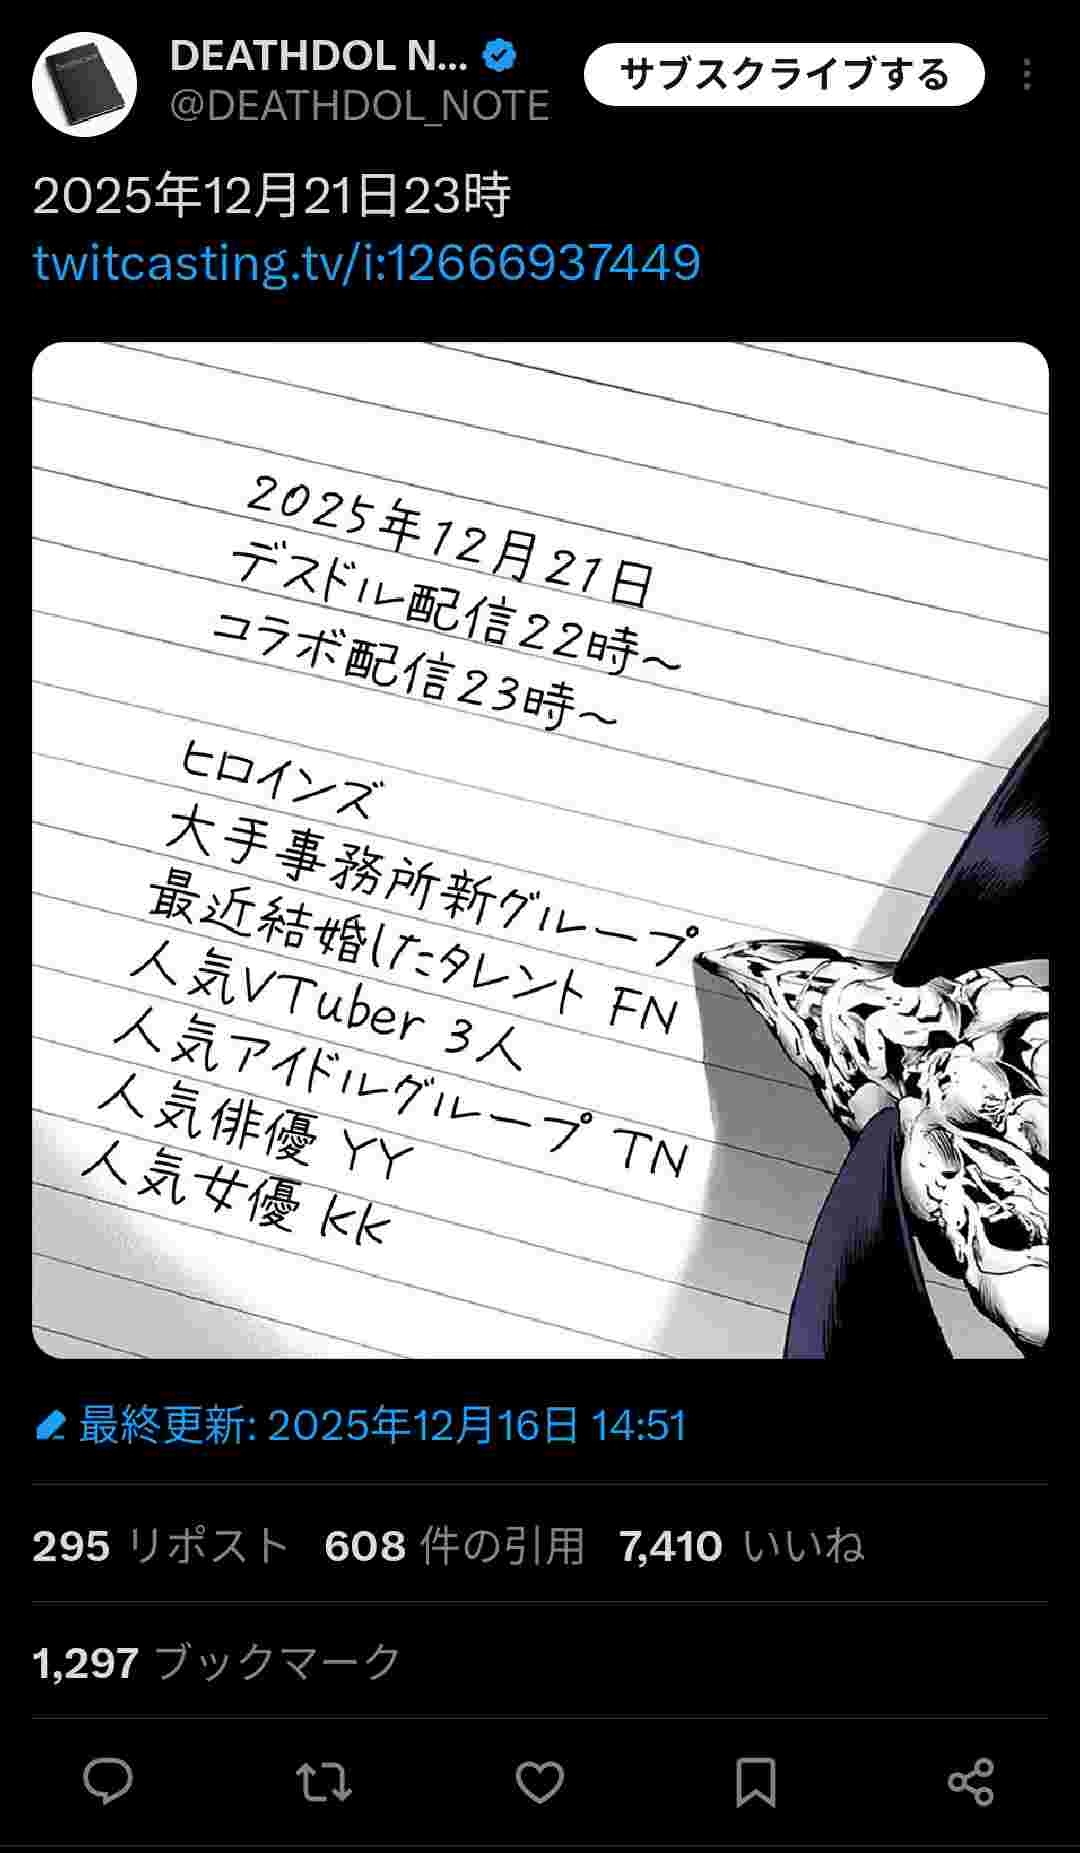 DEATHDOL N...
サブスクライブする
@DEATHDOL_NOTE
2025年12月21日23時
twitcasting.tv/i:12666937449
2025年12月21日
デスドル配信22時～
コラボ配信23時～
ヒロインズ
大手事務所新グループ
最近結婚したタレント FN
人気VTuber 3人
人気アイドルグループ TN
人気俳優 YY
人気女優 KK
最終更新: 2025年12月16日 14:51
295 リポスト 608 件の引用 7,410 いいね
1,297 ブックマーク